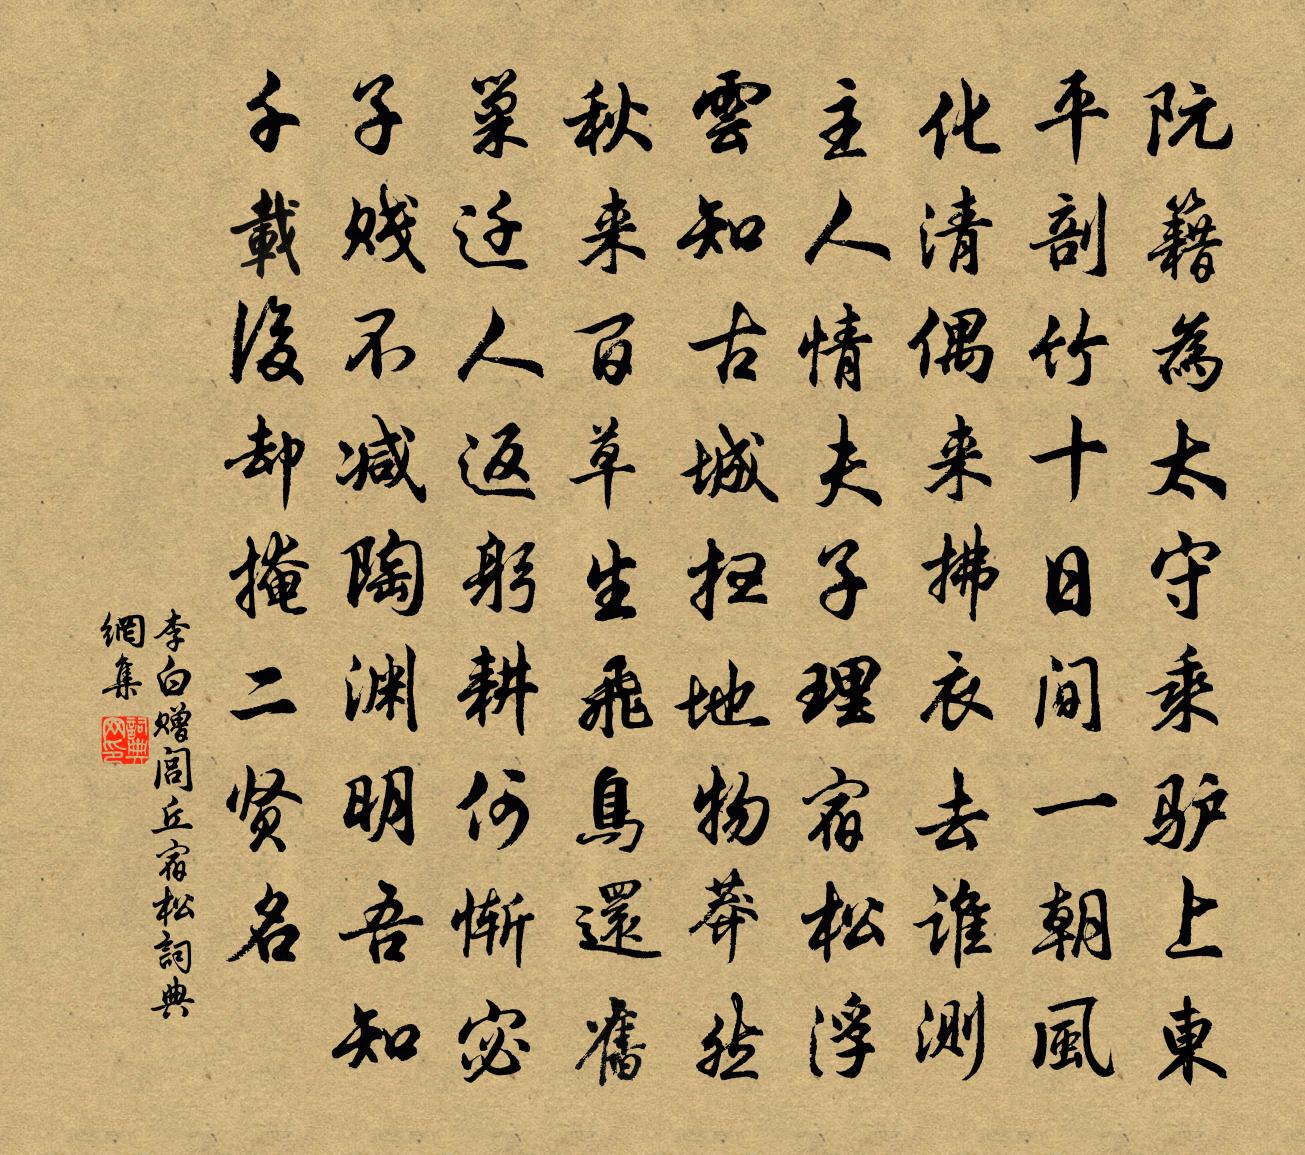 阮籍為太守乘驴上東
平剖竹十日间一朝風
化清偶来拂衣去谁测
主人情夫子理宿松浮
雲知古城扫地物莽然
秋来百草生飛鳥還舊
巢迁人返躬耕何惭宓
子贱不减陶渊明吾知
千載後却掩二贤名
李白赠闾丘宿松詞典
網集
詞典
网印